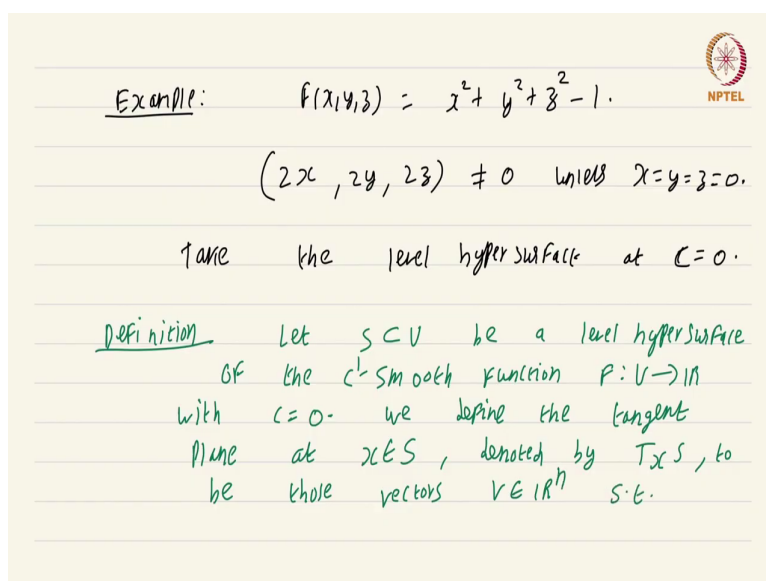 NPTEL
Example: F(x,y,z) = x² + y² + z² - 1.
(2x, 2y, 2z) ≠ 0 unless x=y=z=0.
Take the level hypersurface at C=0.
Definition Let S⊂U be a level hypersurface
of the C¹-smooth function F: U→ℝ
with C=0. We define the tangent
plane at x∈S, denoted by TxS, to
be those vectors V∈ℝⁿ s.t.